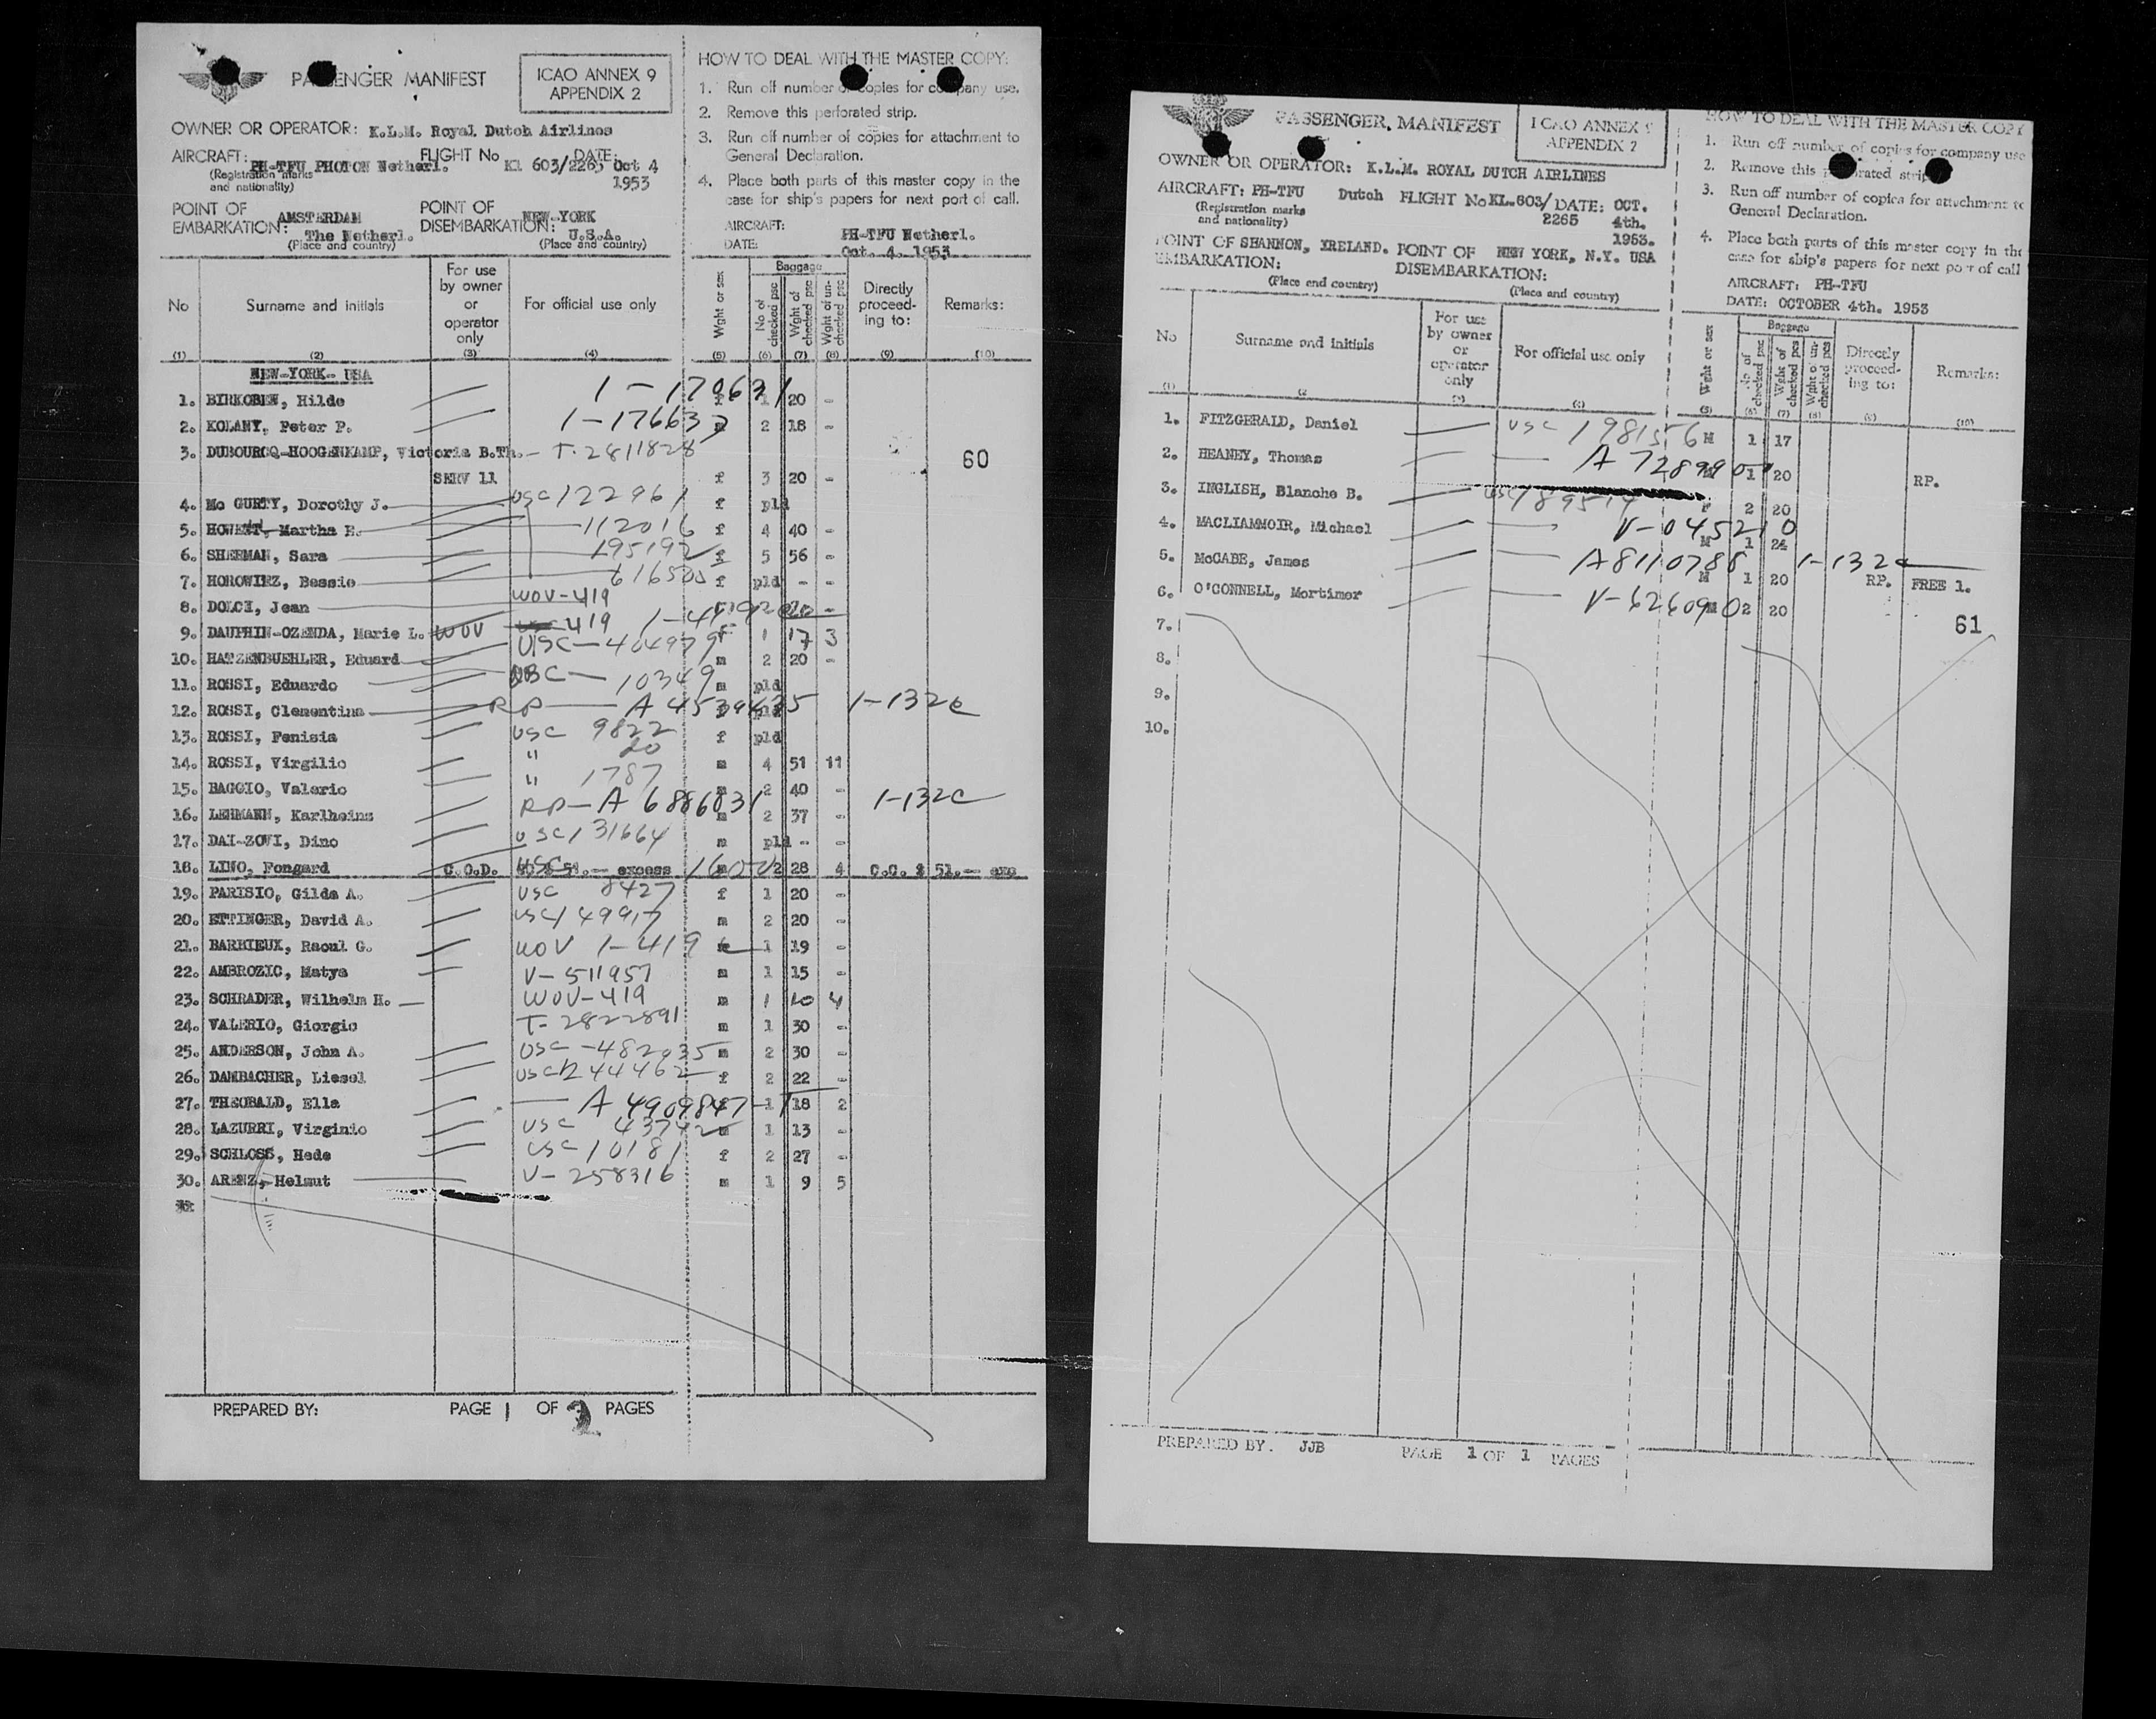 PASSENGER MANIFEST
ICAO ANNEX 9
APPENDIX 2
OWNER OR OPERATOR: K.L.M. Royal Dutch Airlines
AIRCRAFT: PH-TFU PHOTON Netherl. FLIGHT No Kl 603/2265 DATE: Oct 4
(Registration marks
and nationality)
1953
POINT OF EMBARKATION: AMSTERDAM The Netherl. POINT OF DISEMBARKATION: NEW-YORK U.S.A.
(Place and country) (Place and country)
HOW TO DEAL WITH THE MASTER COPY:
1. Run off number of copies for company use.
2. Remove this perforated strip.
3. Run off number of copies for attachment to
General Declaration.
4. Place both parts of this master copy in the
case for ship's papers for next port of call.
AIRCRAFT: PH-TFU Netherl.
DATE: Oct. 4. 1953
No Surname and initials For use by owner or operator only For official use only Wght or sex Baggage No of checked psc Wght of checked psc Wght of un-checked psc Directly proceed-ing to: Remarks:
(1) (2) (3) (4) (5) (6) (7) (8) (9) (10)
NEW-YORK- USA
1. BIRKOBEN, Hilde 1-170631 f 1 20 -
2. KOLANY, Peter P. 1-176637 m 2 18 -
3. DUBOURCQ-HOOGENKAMP, Victoria B.Th. - T-2811828
60
SERV 11 f 3 20 -
4. Mc GURTY, Dorothy J. USC 122961 f pld
5. Martha E. 112016 f 4 40 -
6. SHERMAN, Sara 195192 f 5 56 -
7. HOROWITZ, Bessie 616505 f pld - -
8. DOLCI, Jean WOV-419 2 20 -
9. DAUPHIN-OZENDA, Marie L. WOV 419 1-419 f 1 17 3
10. HATZENBUEHLER, Eduard USC-404979 m 2 20 -
11. ROSSI, Eduardo USC-10349 m pld
12. ROSSI, Clementina RP A 4539435 pld 1-132c
13. ROSSI, Fenisia USC 9822 f pld
14. ROSSI, Virgilio " 20 m 4 51 11
15. BAGGIO, Valerio " 1787 m 2 40 -
16. LEHMANN, Karlheinz RP-A 6886031 m 2 37 1-132c
17. DAI-ZOVI, Dino USC 131664 m pld - -
18. LINO, Fongard C.O.D. USC 51.- excess m 2 28 4 C.C. $ 51.- exc
19. PARISIO, Gilda A. USC 8427 f 1 20 -
20. ETTINGER, David A. USC 149917 m 2 20 -
21. BARBIEUX, Raoul G. WOV 1-419 m 1 19 -
22. AMBROZIC, Matya V-511957 m 1 15 -
23. SCHRADER, Wilhelm H. WOV-419 m 1 10 4
24. VALERIO, Giorgio T-2822891 m 1 30 -
25. ANDERSON, John A. USC-482035 m 2 30 -
26. DAMBACHER, Liesel USC 1244462 f 2 22 -
27. THEOBALD, Ella A 4909847 f 1 18 2
28. LAZURRI, Virginio USC 43742 m 1 13 -
29. SCHLOSS, Hede USC 10181 f 2 27 -
30. ARENZ, Helmut V-258316 m 1 9 5
PREPARED BY: PAGE 1 OF 2 PAGES
PASSENGER MANIFEST
ICAO ANNEX 9
APPENDIX 2
OWNER OR OPERATOR: K.L.M. ROYAL DUTCH AIRLINES
AIRCRAFT: PH-TFU Dutch FLIGHT No KL.603/ 2265 DATE: OCT. 4th. 1953.
(Registration marks
and nationality)
POINT OF EMBARKATION: SHANNON, IRELAND. POINT OF DISEMBARKATION: NEW YORK, N.Y. USA
(Place and country) (Place and country)
HOW TO DEAL WITH THE MASTER COPY
1. Run off number of copies for company use
2. Remove this perforated strip
3. Run off number of copies for attachment to
General Declaration.
4. Place both parts of this master copy in the
case for ship's papers for next port of call
AIRCRAFT: PH-TFU
DATE: OCTOBER 4th. 1953
No Surname and initials For use by owner or operator only For official use only Wght or sex Baggage No of checked psc Wght of checked pcs Wght of un-checked pcs Directly proceed-ing to: Remarks:
1. FITZGERALD, Daniel USC 198156 M 1 17
2. HEANEY, Thomas A 7289907 1 20 RP.
3. INGLISH, Blanche B. USC 189514 F 2 20
4. MACLIAMMOIR, Michael V-045210 M 1 24
5. McCABE, James A8110788 M 1 20 1-132c RP. FREE 1.
6. O'CONNELL, Mortimer V-626090 M 2 20
61
7.
8.
9.
10.
PREPARED BY. JJB PAGE 1 OF 1 PAGES